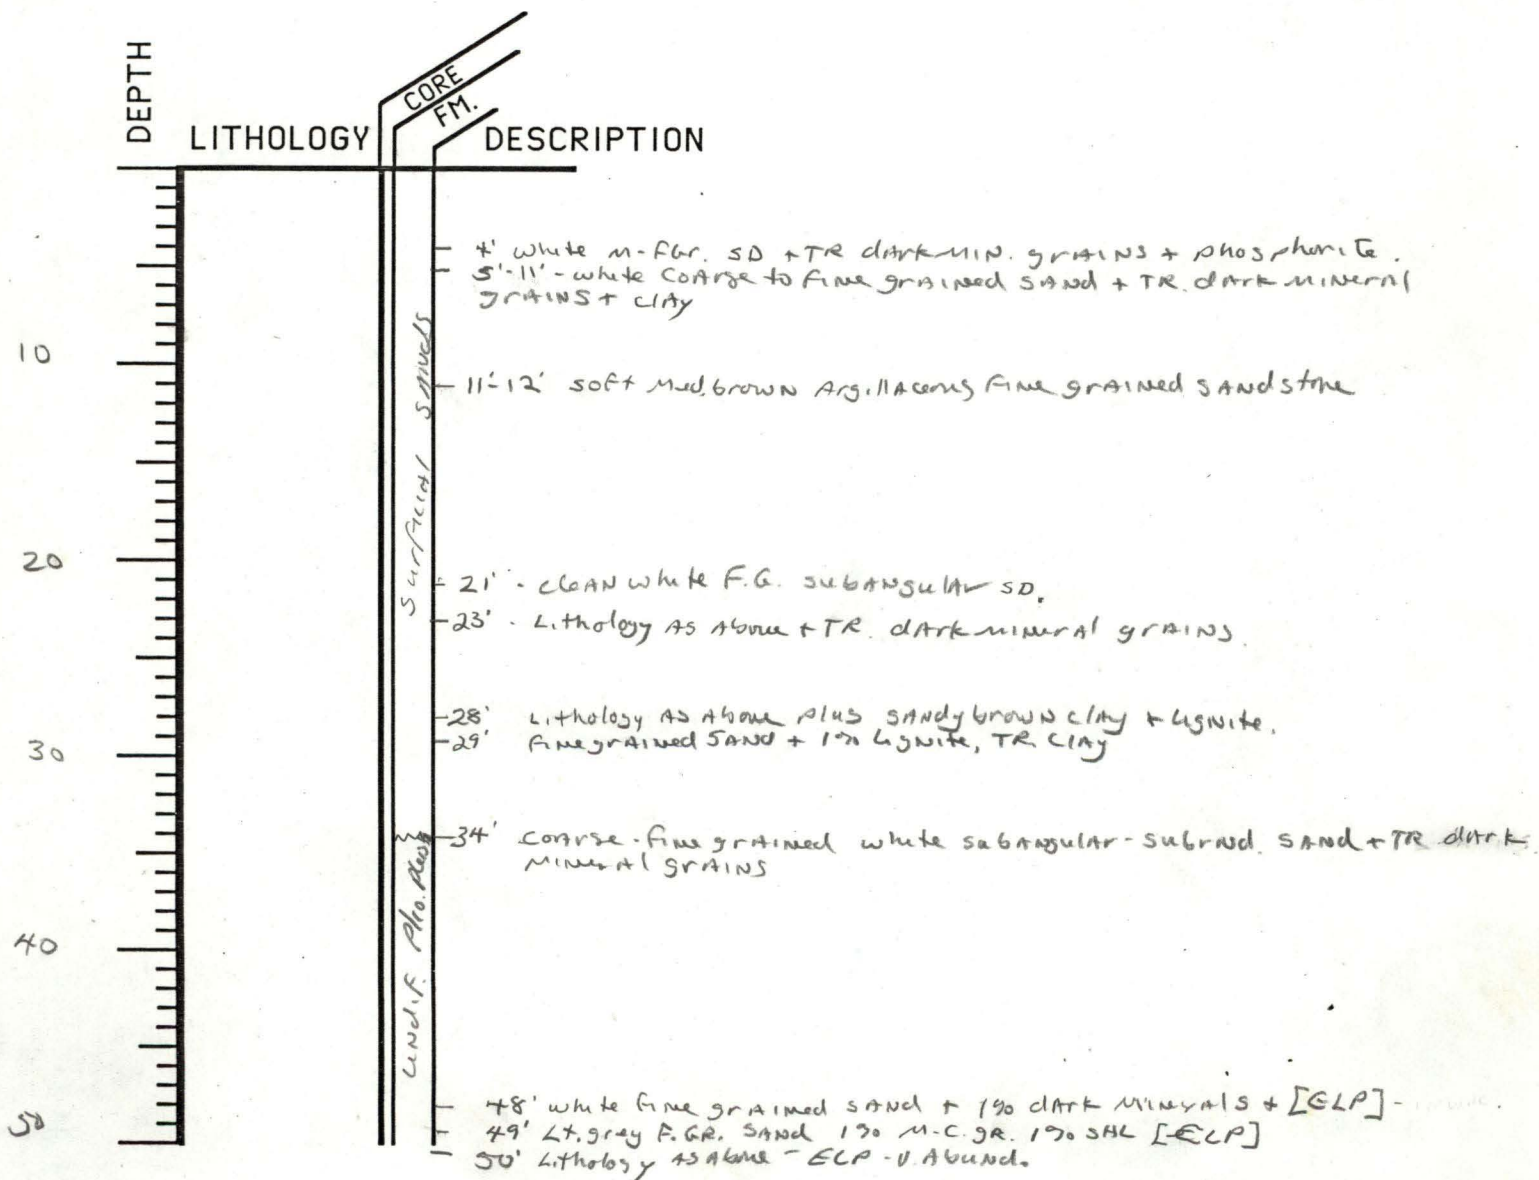 DEPTH
LITHOLOGY
CORE
FM.
DESCRIPTION
4' white M-FGr. SD + TR dark MIN. grains + phosphorite.
5'-11' - white coarse to fine grained sand + TR. dark mineral
grains + clay
10
11'-12' soft Med. brown Argillaceous fine grained sandstone
Surficial Sands
20
21' - clean white F.G. subangular SD.
23' - Lithology As Above + TR. dark mineral grains.
28' Lithology As Above plus sandy brown clay + Lignite.
29' fine grained sand + 1% Lignite, TR. clay
30
34' coarse-fine grained white subangular-subrnd. sand + TR dark
mineral grains
Undif. Plio. Pleist
40
48' white fine grained sand + 1% dark minerals + [ELP] -
50
49' Lt. grey F.GR. sand 1% M-C.gR. 1% SHL [ELP]
50' Lithology As Above - ELP - V. Abund.